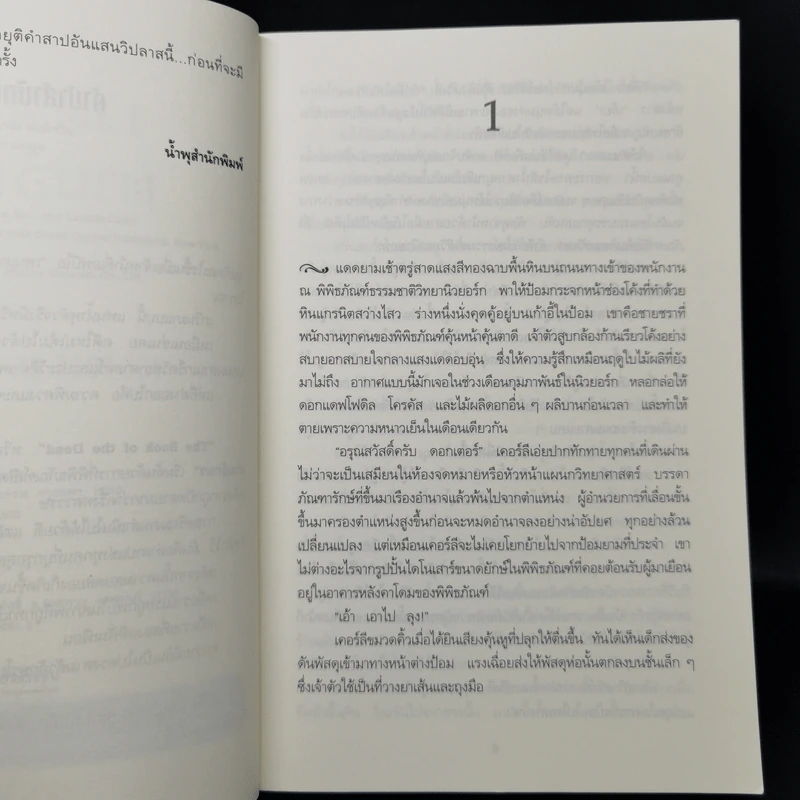 ยุติคำสาปอันแสนวิปลาสนี้...ก่อนที่จะมี
รั้ง
น้ำพุสำนักพิมพ์
The Book of the Dead"
1
แดดยามเช้าตรู่สาดแสงสีทองฉาบพื้นหินบนถนนทางเข้าของพนักงาน
ณ พิพิธภัณฑ์ธรรมชาติวิทยานิวยอร์ก พาให้ป้อมกระจกหน้าช่องโค้งที่ทำด้วย
หินแกรนิตสว่างไสว ร่างหนึ่งนั่งคุดคู้อยู่บนเก้าอี้ในป้อม เขาคือชายชราที่
พนักงานทุกคนของพิพิธภัณฑ์คุ้นหน้าคุ้นตาดี เจ้าตัวสูบกล้องก้านเรียวโค้งอย่าง
สบายอกสบายใจกลางแสงแดดอบอุ่น ซึ่งให้ความรู้สึกเหมือนฤดูใบไม้ผลิที่ยัง
มาไม่ถึง อากาศแบบนี้มักเจอในช่วงเดือนกุมภาพันธ์ในนิวยอร์ก หลอกล่อให้
ดอกแดฟโฟดิล โครคัส และไม้ผลิดอกอื่น ๆ ผลิบานก่อนเวลา และทำให้
ตายเพราะความหนาวเย็นในเดือนเดียวกัน
"อรุณสวัสดิ์ครับ ดอกเตอร์" เคอร์ลีเอ่ยปากทักทายทุกคนที่เดินผ่าน
ไม่ว่าจะเป็นเสมียนในห้องจดหมายหรือหัวหน้าแผนกวิทยาศาสตร์ บรรดา
ภัณฑารักษ์ที่ขึ้นมาเรืองอำนาจแล้วพ้นไปจากตำแหน่ง ผู้อำนวยการที่เลื่อนขั้น
ขึ้นมาครองตำแหน่งสูงขึ้นก่อนจะหมดอำนาจลงอย่างน่าอัปยศ ทุกอย่างล้วน
เปลี่ยนแปลง แต่เหมือนเคอร์ลีจะไม่เคยโยกย้ายไปจากป้อมยามที่ประจำ เขา
ไม่ต่างอะไรจากรูปปั้นไดโนเสาร์ขนาดยักษ์ในพิพิธภัณฑ์ที่คอยต้อนรับผู้มาเยือน
อยู่ในอาคารหลังคาโดมของพิพิธภัณฑ์
"เอ้า เอาไป ลุง!"
เคอร์ลีขมวดคิ้วเมื่อได้ยินเสียงคุ้นหูที่ปลุกให้ตื่นขึ้น ทันได้เห็นเด็กส่งของ
ดันพัสดุเข้ามาทางหน้าต่างป้อม แรงเฉื่อยส่งให้พัสดุห่อนั้นตกลงบนชั้นเล็ก ๆ
ซึ่งเจ้าตัวใช้เป็นที่วางยาเส้นและถุงมือ